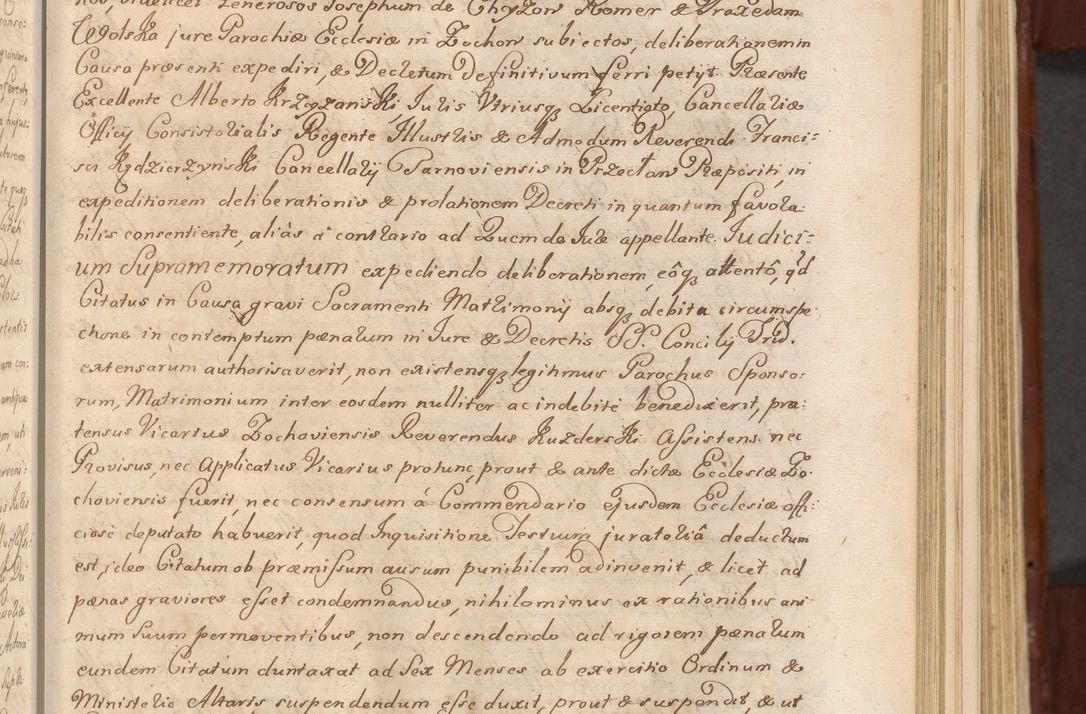 nos, videlicet Generosos Josephum de Chyzow Romer & Praxedam
Wolska jure Parochiæ Ecclesiæ in Zochow subiectos, deliberationem in
Causa præsenti expediri, & Decretum Definitivum ferri petijt. Præsente
Excellente Alberto Krzyzanski, Iuris Vtriusq; Licentiato, Cancellariæ
Officij Consistorialis Regente Illustris & Admodum Reverendi Franci:
sci Kędzierzynski Cancellarij Tarnoviensis in Przecław Præpositi, in
expeditionem deliberationis & prolationem Decreti in quantum favora
bilis consentiente, aliàs à contrario ad Quem de Jure appellante. Judici:
um Supramemoratum expediendo deliberationem, eôq; attentô, qd
Citatus in Causa gravi Sacramenti Matrimonij absq; debita circumspe
ctione in contemptum pænarum in Jure & Decretis SS. Concilij Trid.
extensarum authorisaverit, non existensq; legitimus Parochus Sponso:
rum, Matrimonium inter eosdem nulliter ac indebitè benedixerit, præ:
tensus Vicarius Zochoviensis Reverendus Kuzderski Assistens nec
Provisus, nec Applicatus Vicarius protunc, prout & ante dictæ Ecclesiæ Zo:
choviensis fuerit, nec consensum á Commendario ejusdem Ecclesiæ offi:
ciosè deputato habuerit, quod Inquisitione Testium juratoriâ deductum
est, ideo Citatum ob præmissum ausum punibilem adinvenit, & licet ad
pænas graviores esset condemnandus, nihilominus ex rationibus ani:
mum Suum permoventibus, non descendendo ad rigorem pænarum
eundem Citatum duntaxat ad Sex Menses ab exercitio Ordinum &
Ministerio Altaris suspendendum esse duxit, prout & suspendit, & ut